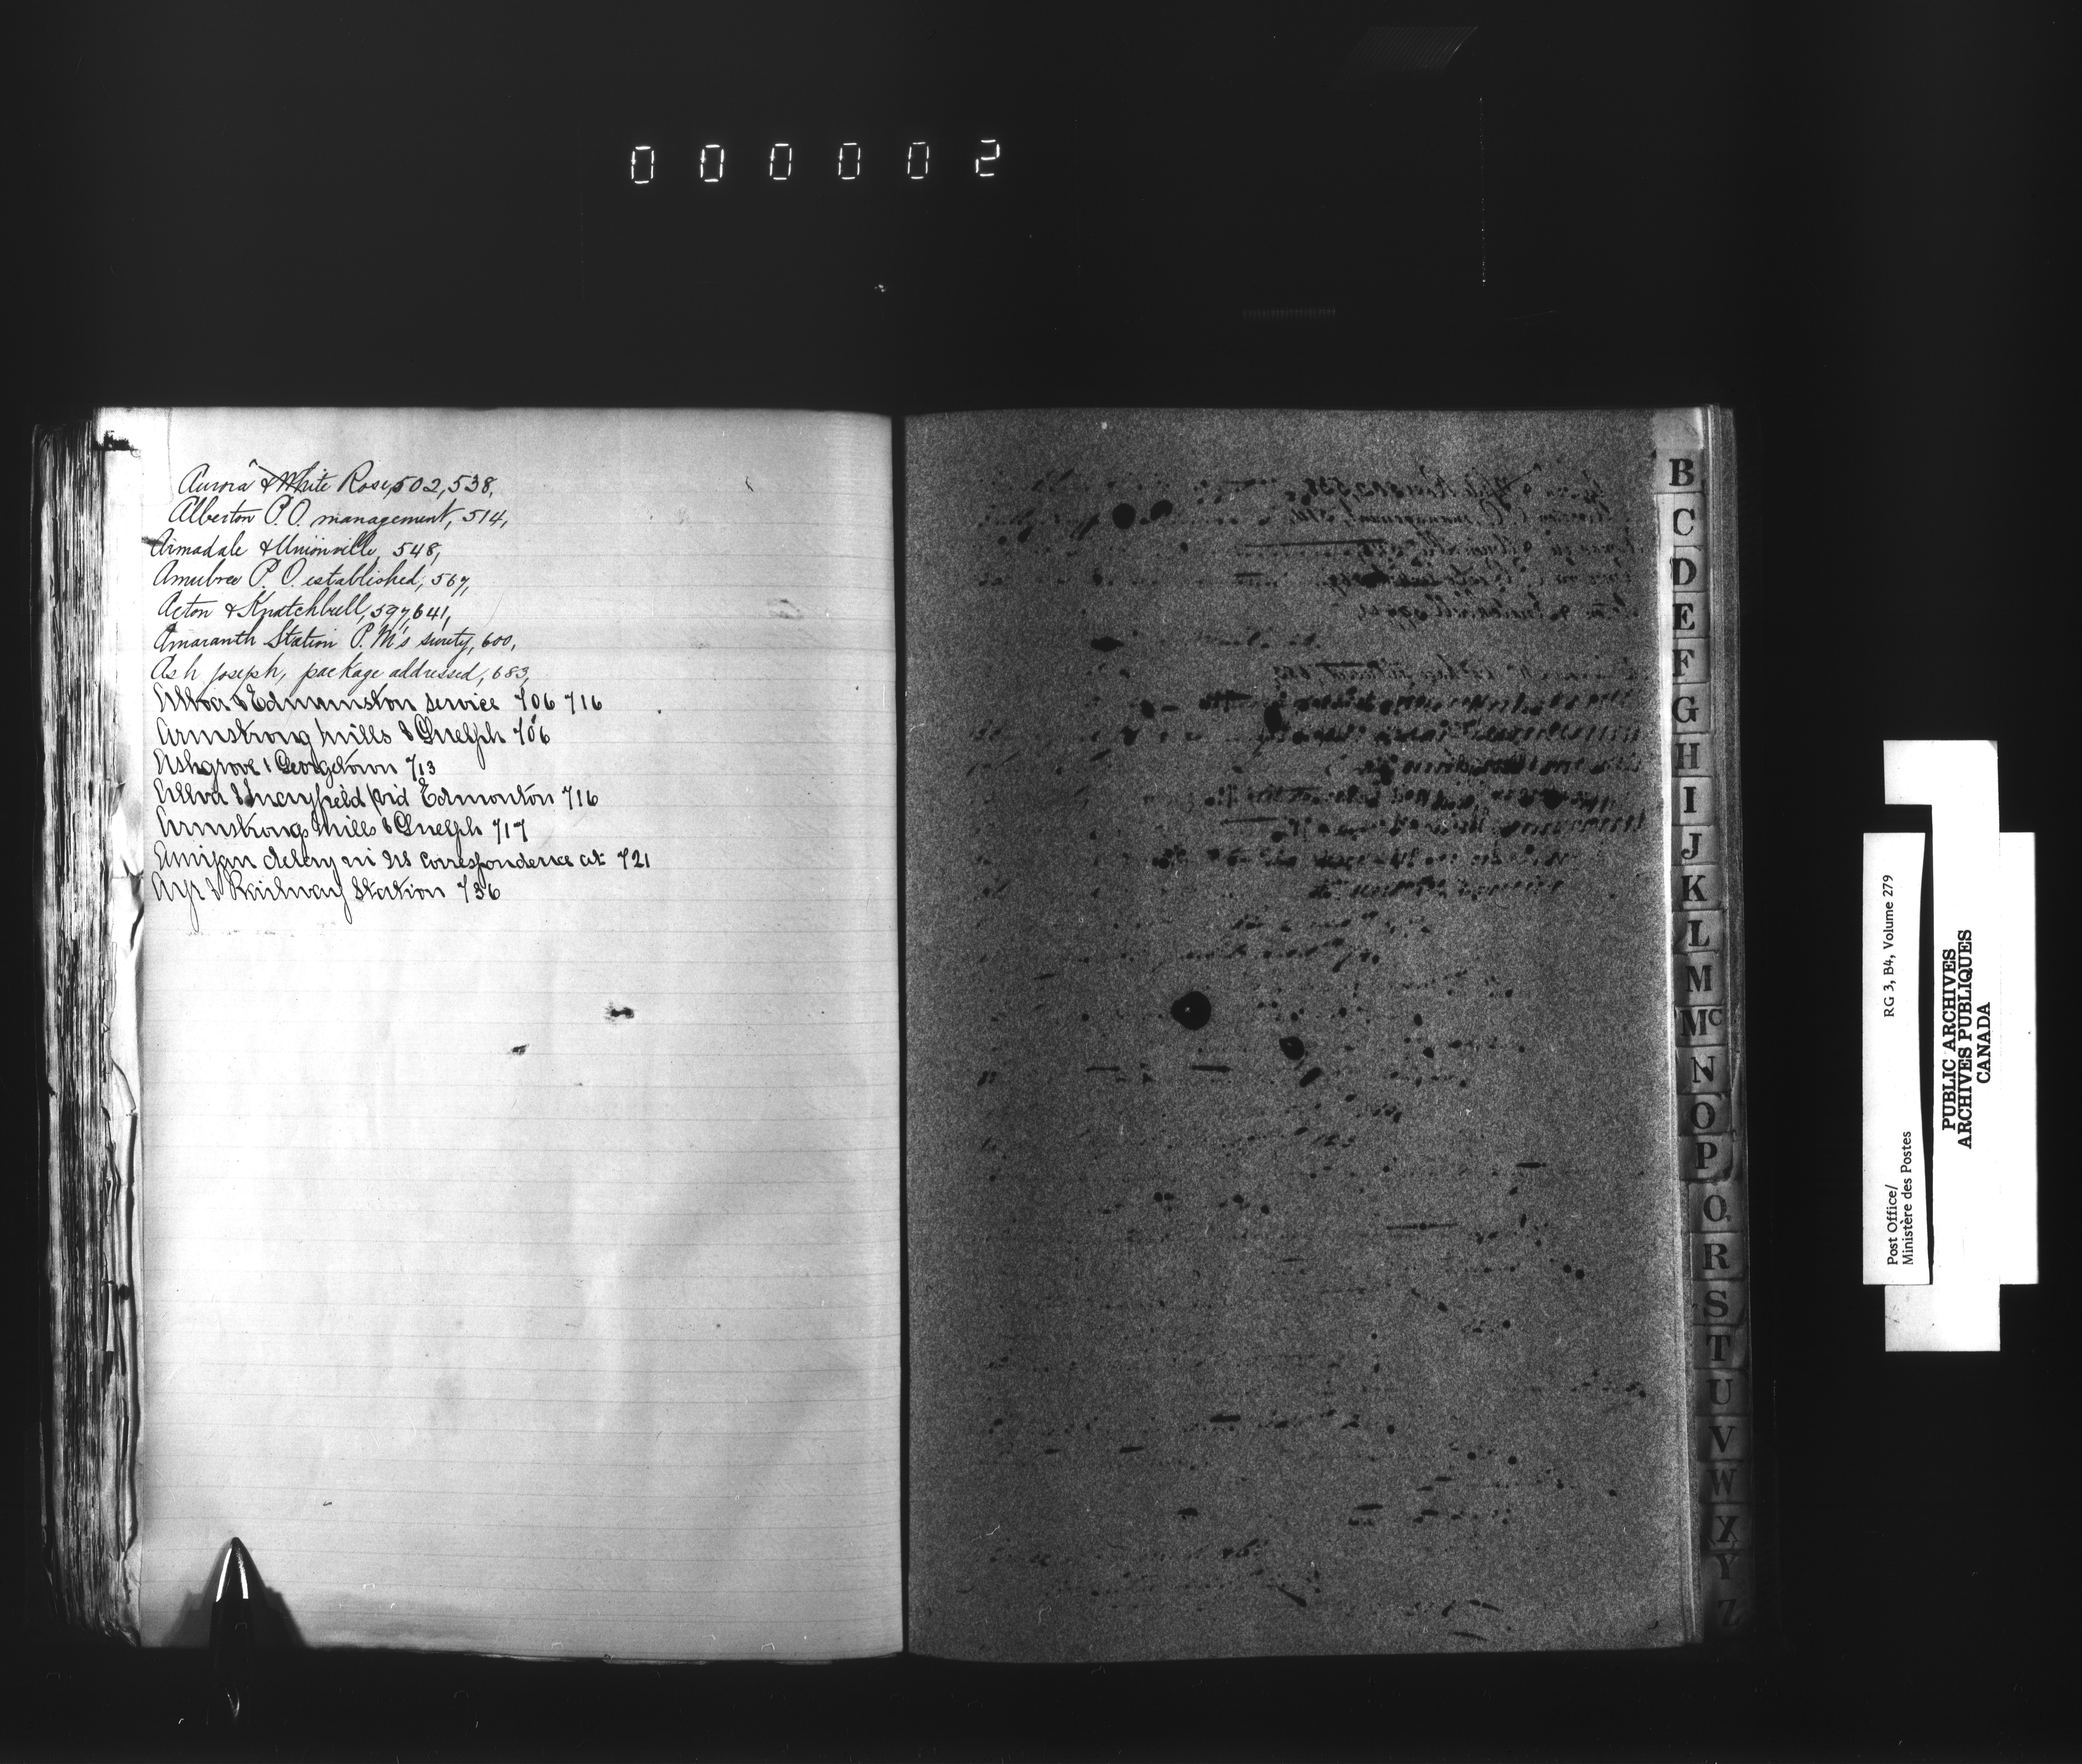 000002
Aurora & White Rose, 502, 538,
Alberton P.O. management, 514,
Armadale & Unionville, 548,
P.O. established, 567,
Acton & Knatchbull, 597, 641,
Amaranth Station P.M's surety, 600,
Ash Joseph, package addressed, 683,
& Edmunston service 706 716
Armstrong Mills & Guelph 706
Ashgrove & Georgetown 713
& Edmonton 716
Armstrongs Mills & Guelph 717
delay in correspondence at 721
Ayr & Railway Station 736
B
C
D
E
F
G
H
I
J
K
L
M
Mc
N
O
P
Q
R
S
T
U
V
W
X
Y
Z
Post Office/
Ministère des Postes
RG 3, B4, Volume 279
PUBLIC ARCHIVES
ARCHIVES PUBLIQUES
CANADA